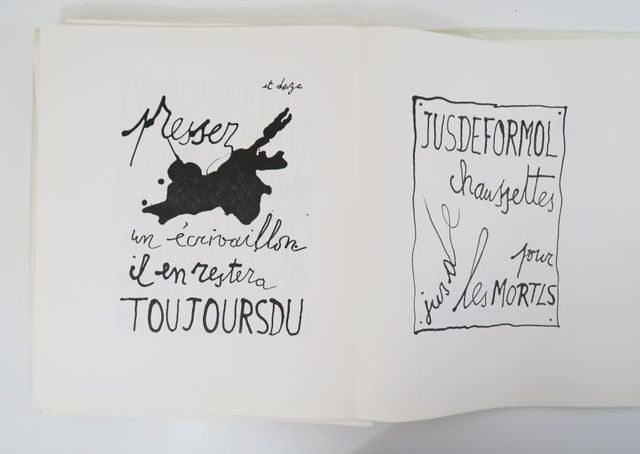 et doze
presser
un écrivaillon
il en restera
TOUJOURSDU
JUSDEFORMOL
chaussettes
jus de
pour
les MORTLS